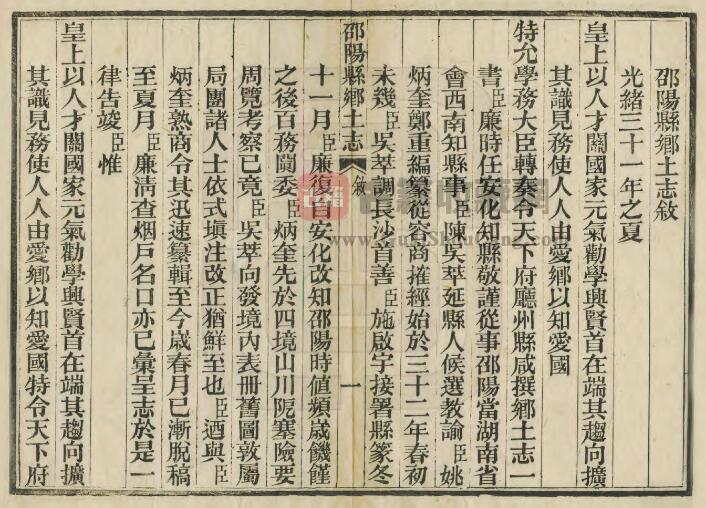 邵陽縣鄉土志敘
光緒三十一年之夏
皇上以人才關國家元氣勸學興賢首在端其趨向擴
其識見務使人人由愛鄉以知愛國
特允學務大臣轉奏令天下府廳州縣咸撰鄉土志一
書臣廉時任安化知縣敬謹從事邵陽當湖南省
會西南知縣事臣陳吳萃延縣人候選教諭臣姚
炳奎鄭重編纂從容商搉經始於三十二年春初
未幾臣吳萃調長沙首善臣施啟宇接署縣篆冬
邵陽縣鄉土志
敘
一
十一月臣廉復自安化改知邵陽時值頻歲饑饉
之後百務闐委臣炳奎先於四境山川阨塞險要
周覽考察已竟臣吳萃向發境內表冊舊圖敦屬
局團諸人士依式填注改正猶鮮至也臣迺與臣
炳奎熟商令其迅速纂輯至今歲春月已漸脫稿
至夏月臣廉清查烟戶名口亦已彙呈志於是一
律告竣臣惟
皇上以人才關國家元氣勸學興賢首在端其趨向擴
其識見務使人人由愛鄉以知愛國特令天下府